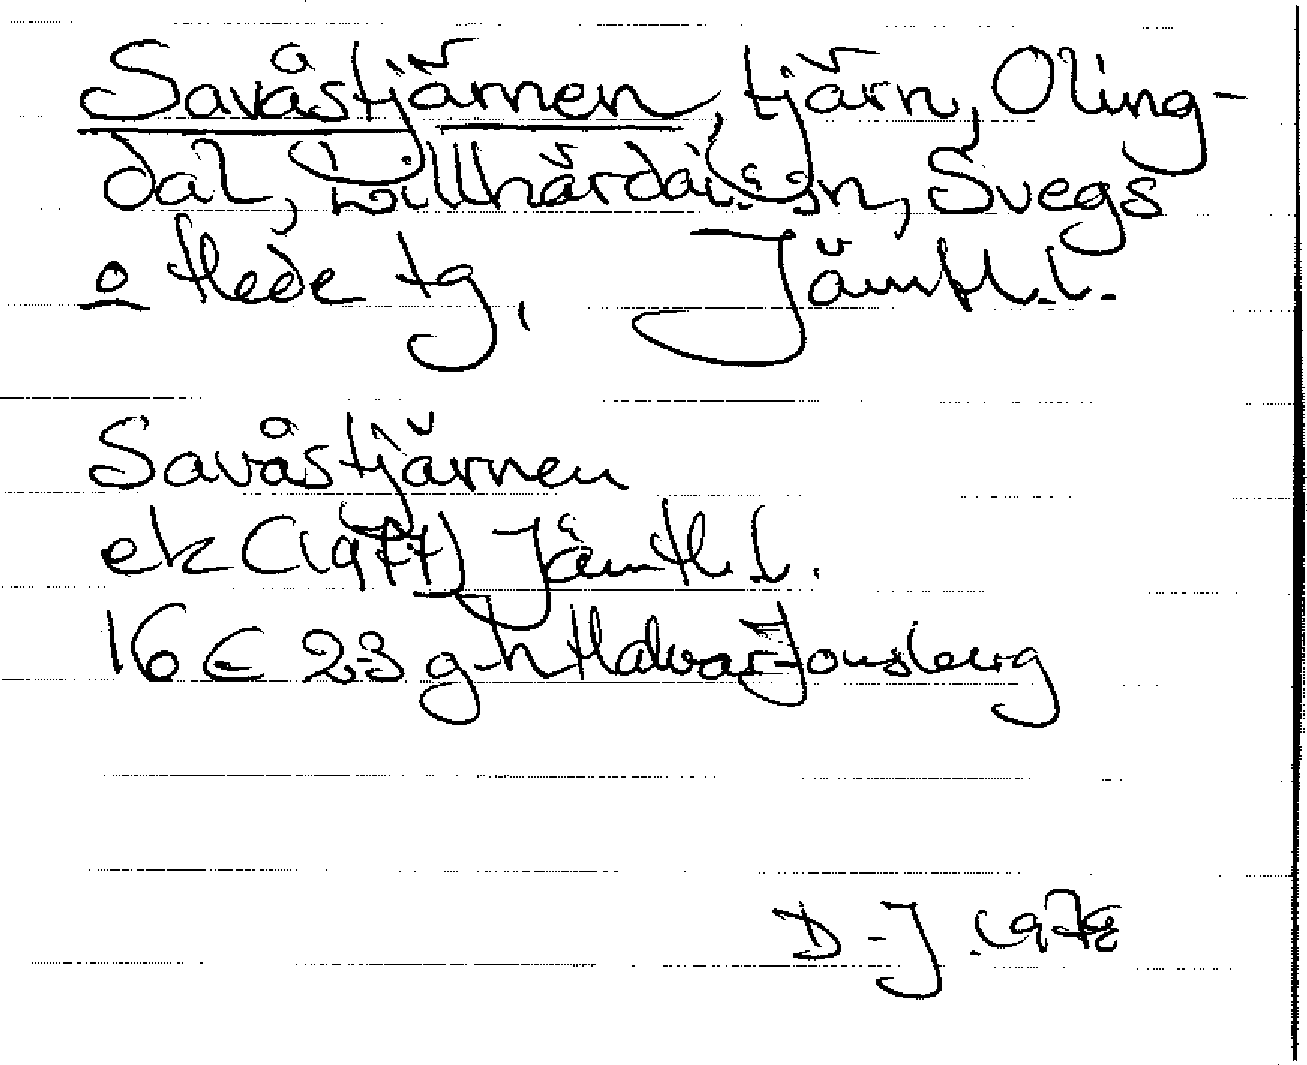 Savåstjärnen, tjärn, Oling-
dal, Lillhärdal sn, Svegs
o Hede tg, Jämtl. l.
Savåstjärnen
ek (1977) Jämtl l.
16 E 2-3 g-h HalvarJonsberg
D-J 1978